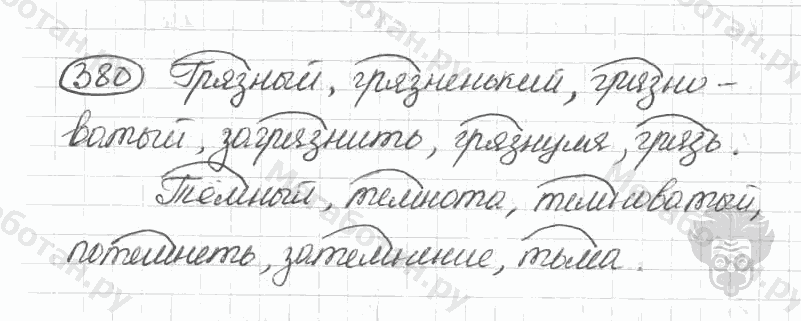 380 Грязный, грязненький, грязно-
ватый, загрязнить, грязнуля, грязь.
Темный, темнота, темноватый,
потемнеть, затемнение, тьма.
Мегаботан.ру